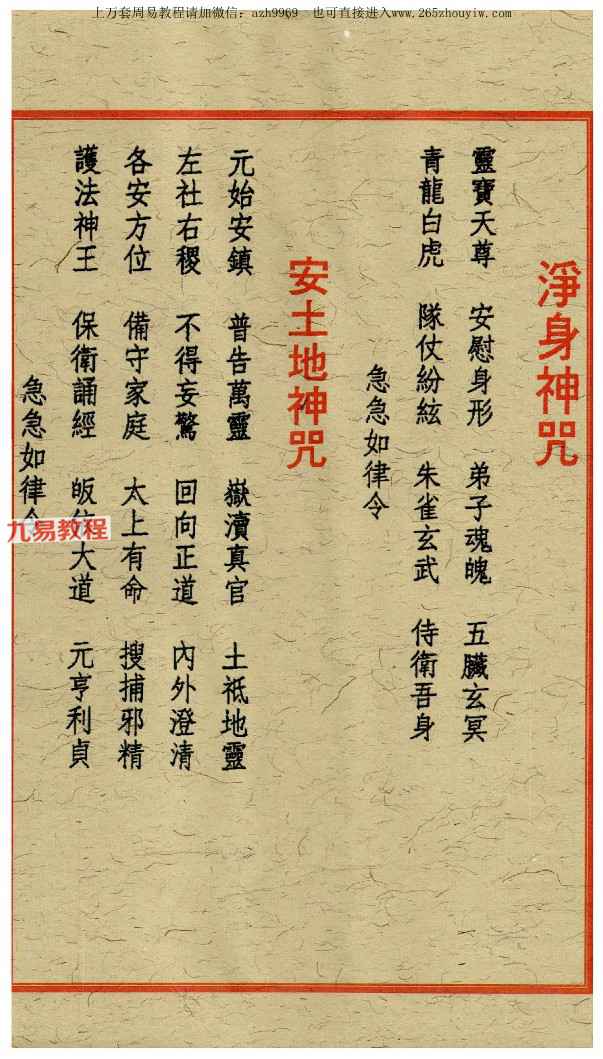 上万套周易教程请加微信：azh9969 也可直接进入www.265zhouyiw.com
淨身神咒
靈寶天尊 安慰身形 弟子魂魄 五臟玄冥
青龍白虎 隊仗紛紜 朱雀玄武 侍衛吾身
急急如律令
安土地神咒
元始安鎮 普告萬靈 嶽瀆真官 土祗地靈
左社右稷 不得妄驚 回向正道 內外澄清
各安方位 備守家庭 太上有命 搜捕邪精
護法神王 保衛誦經 皈依大道 元亨利貞
急急如律令
九易教程